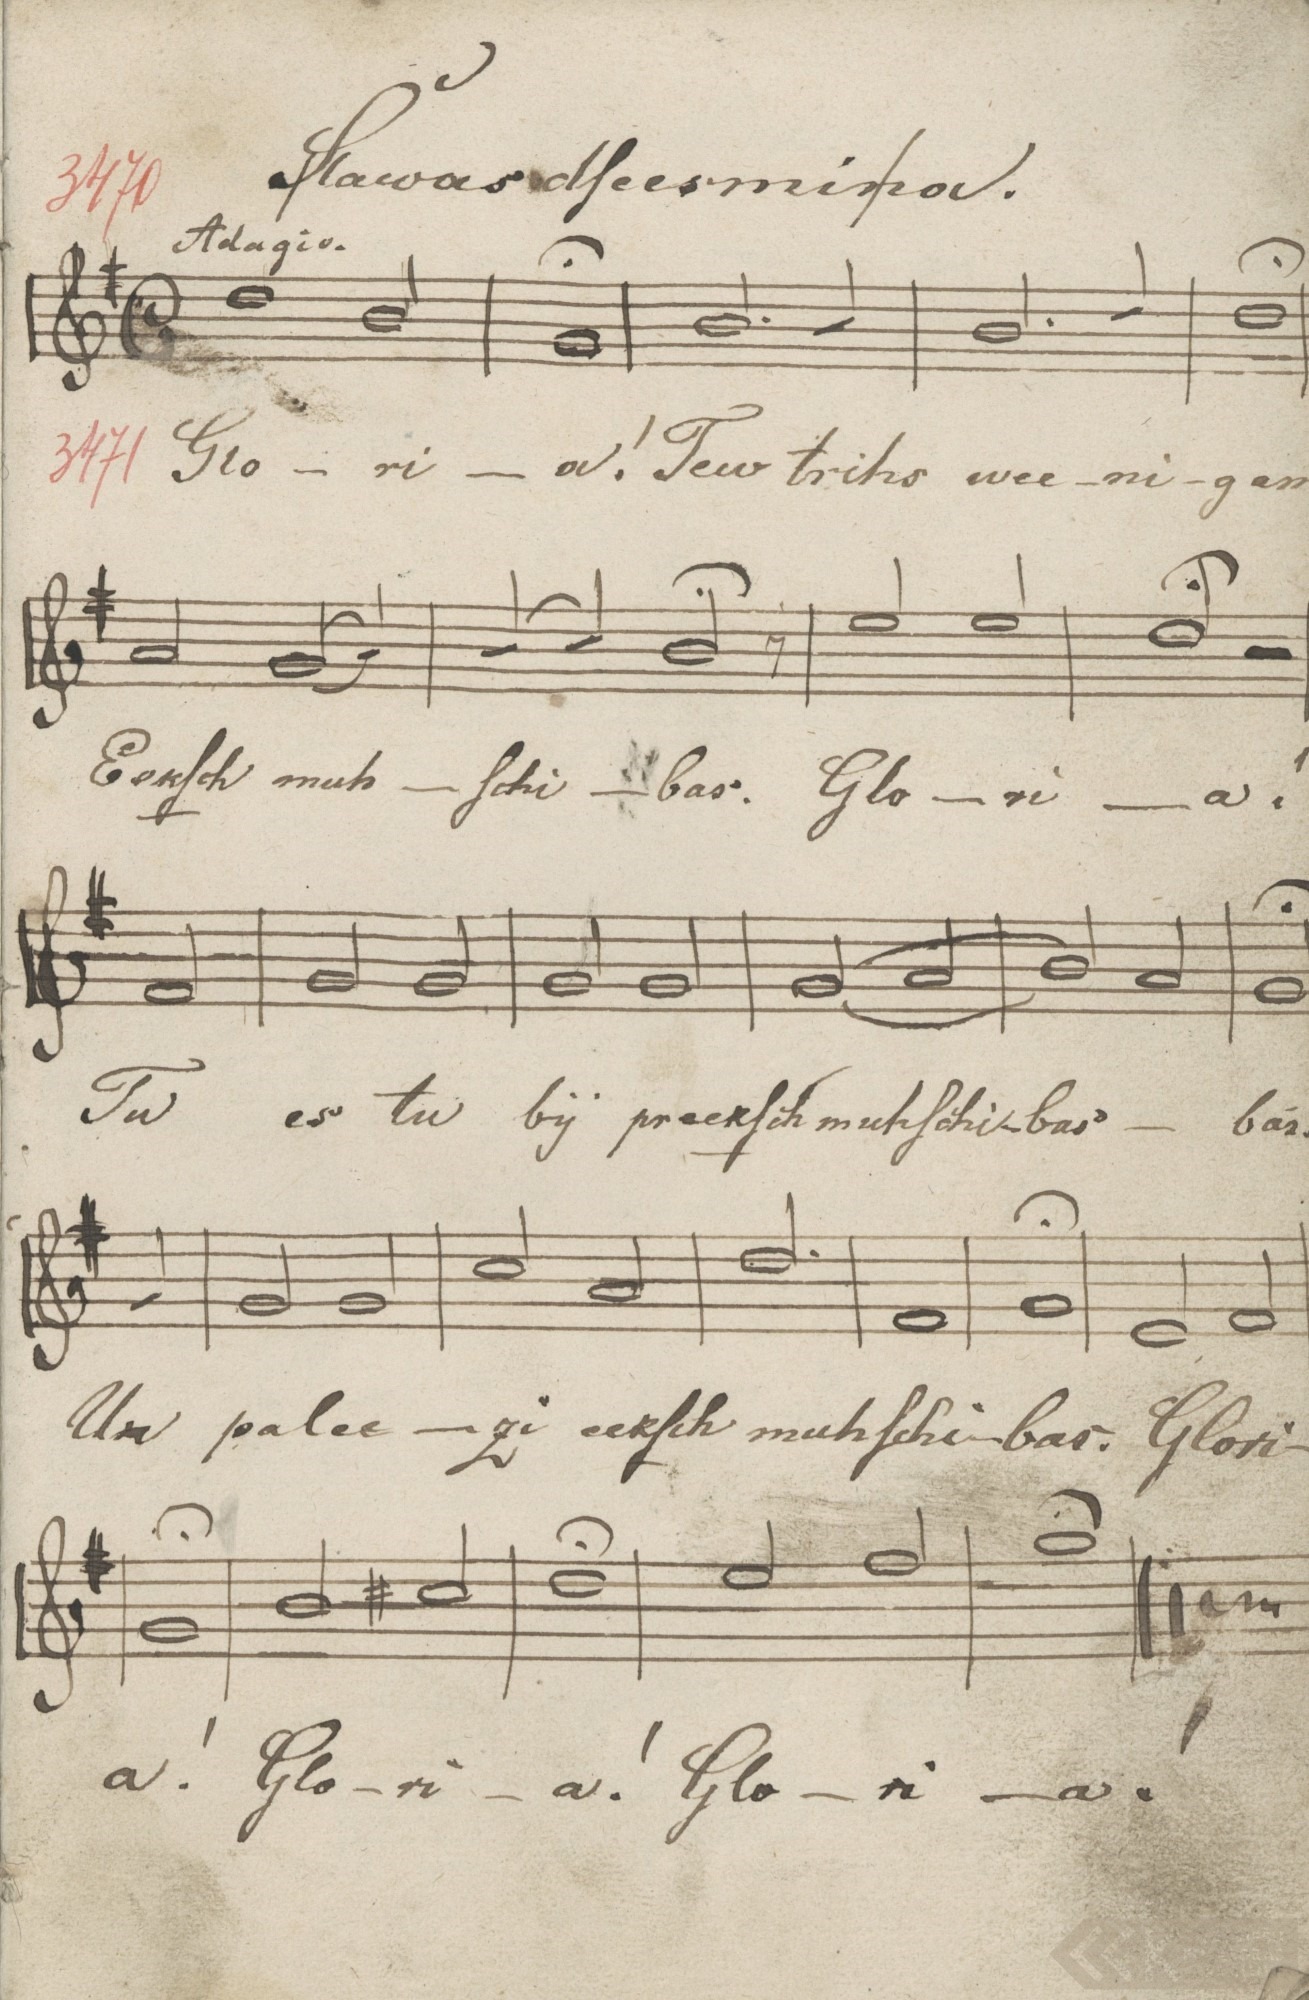 3470 Slawas dſeesmiņa.
Adagio.
3471 Glo - ri - a! Tew trihs wee - ni - gam
Eekſch muh - ſchi - bas. Glo - ri - a!
Tu es tu bij preekſch muhſchi - bas - bas.
Un palee - zi eekſch muhſchi - bas. Glori -
a! Glo - ri - a! Glo - ri - a!